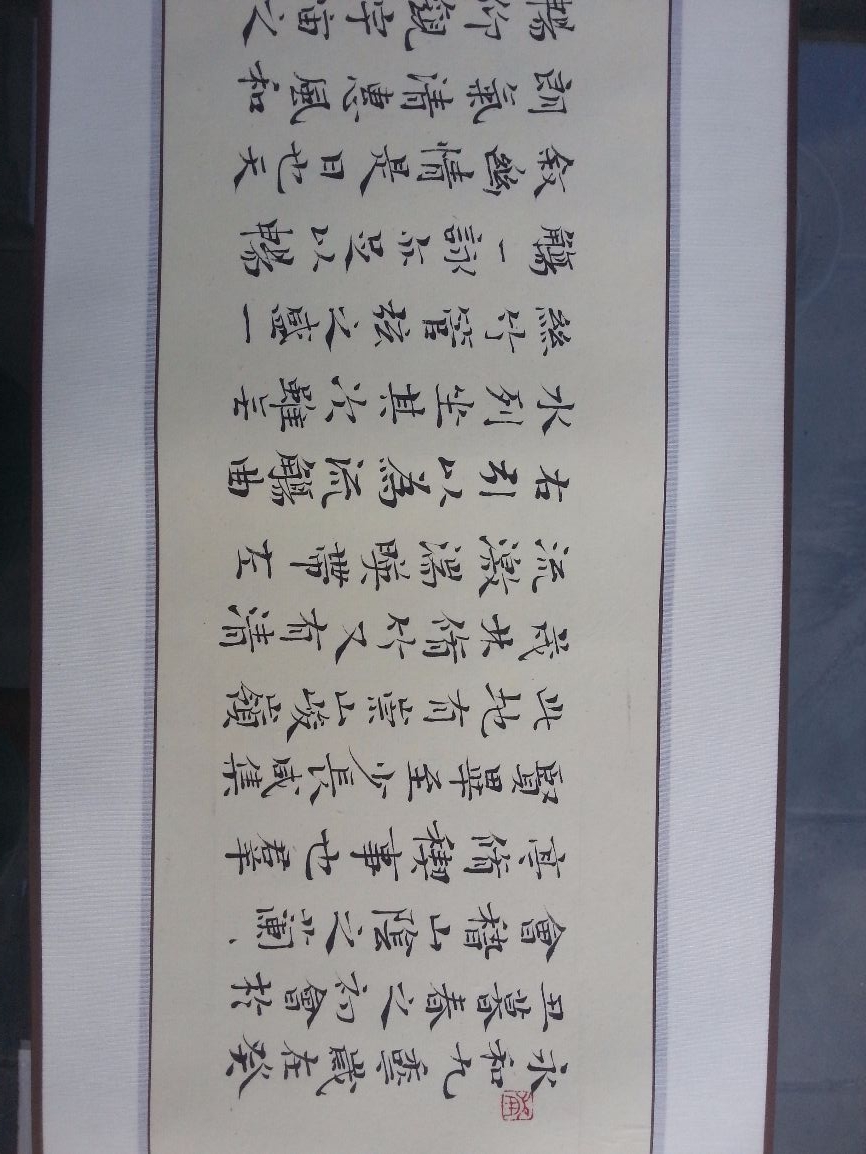 永和九年歲在癸
丑暮春之初會於
會稽山陰之蘭
亭脩禊事也羣
賢畢至少長咸集
此地有崇山峻領
茂林脩竹又有清
流激湍暎帶左
右引以為流觴曲
水列坐其次雖無
絲竹管弦之盛一
觴一詠亦足以暢
敘幽情是日也天
朗氣清惠風和
暢仰觀宇宙之